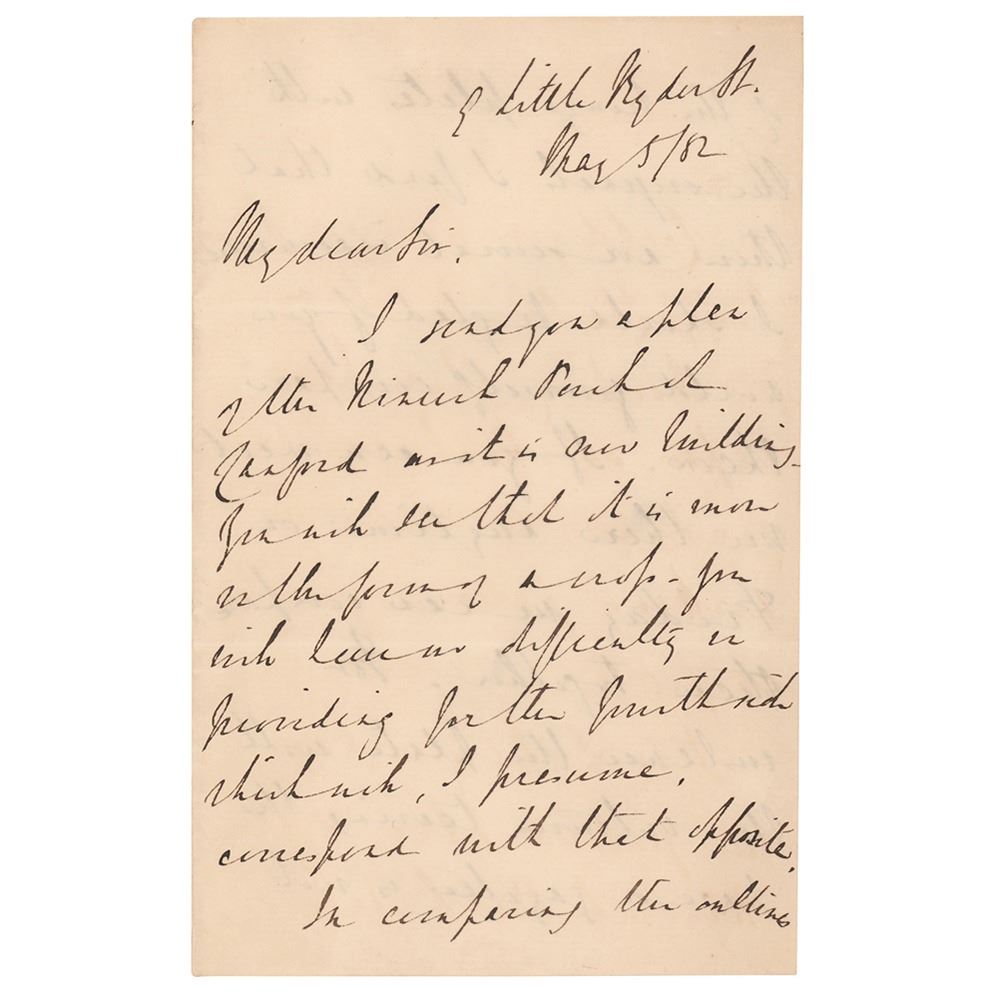 9 Little Ryder St.
May 5/52
My dear Sir.
I send you a plan
of the Nineveh Porch at
Canford as it is now building -
you will see that it is more
in the form of a cross - you
will have no difficulty in
providing for the fourth side
which will, I presume,
correspond with that opposite.
In comparing the outlines